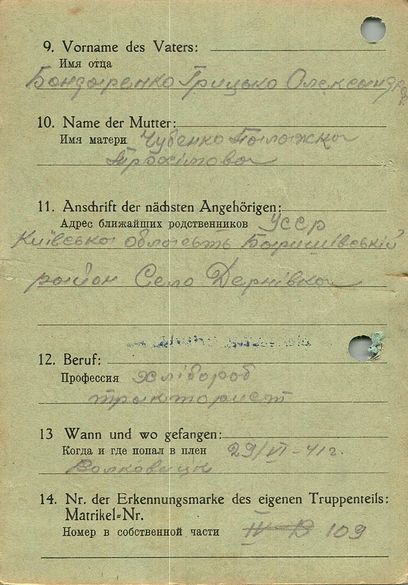 9. Vorname des Vaters:
Имя отца
Бондыренко Грицько Олександров
10. Name der Mutter:
Имя матери Чубенко Палажка
Трохимовна
11. Anschrift der nächsten Angehörigen:
Адрес ближайших родственников УССР
Київська область Баришівській
район Село Дернівка
12. Beruf:
Профессия хлібороб
тракторист
13 Wann und wo gefangen:
Когда и где попал в плен 29/VI-41г.
Волковицк
14. Nr. der Erkennungsmarke des eigenen Truppenteils:
Matrikel=Nr.
Номер в собственной части IV B 109